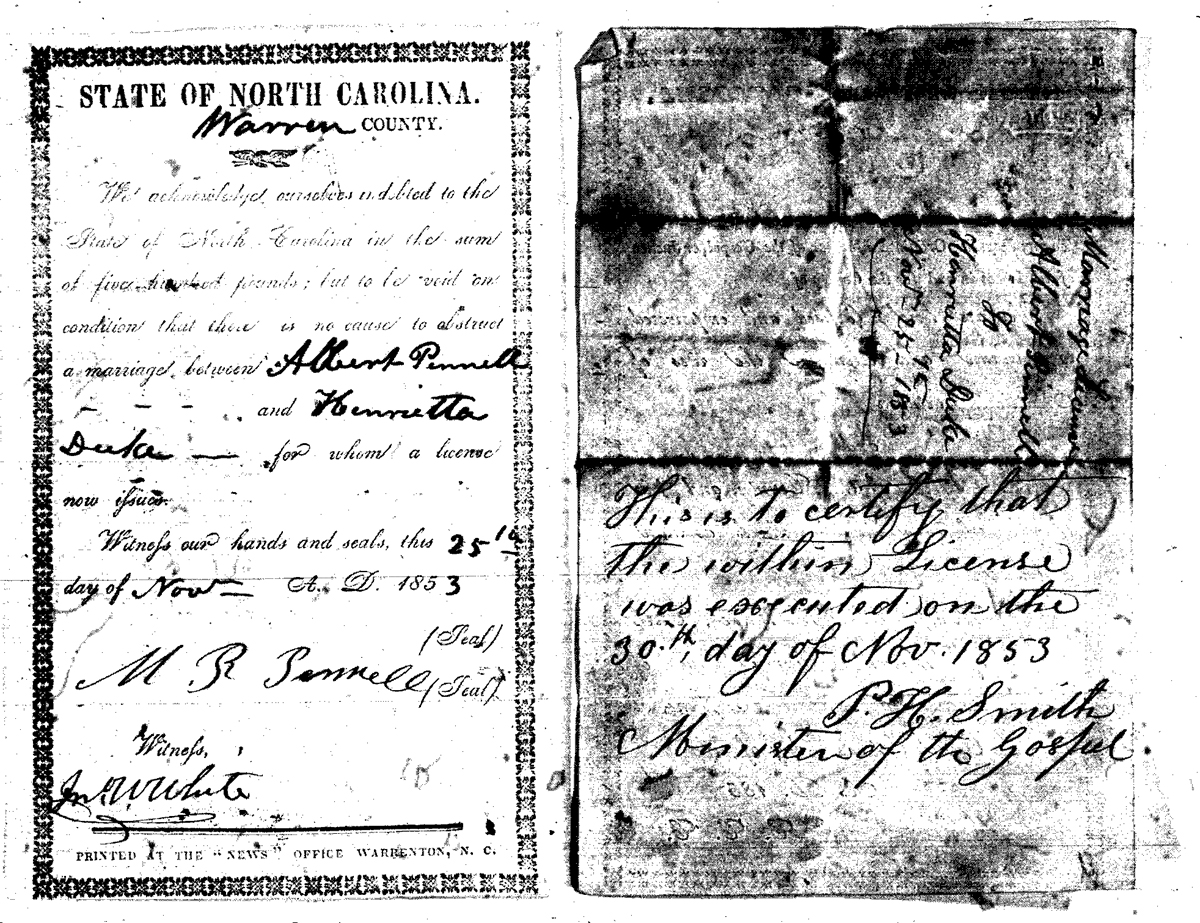 STATE OF NORTH CAROLINA.
Warren COUNTY.
We acknowledge ourselves indebted to the
State of North Carolina in the sum
of five hundred pounds; but to be void on
condition that there is no cause to obstruct
a marriage between Albert Pennell
- - - and Henrietta
Duke — for whom a license
now issues.
Witness our hands and seals, this 25th
day of Nov — A. D. 1853
(Seal)
M R Pennell (Seal)
Witness,
Jno W White
PRINTED AT THE "NEWS" OFFICE WARRENTON, N. C.
Marriage License
Albert Pennell
to
Henrietta Duke
Nov 25th 1853
This is to certify that
the within License
was executed on the
30.th, day of Nov. 1853
P. H. Smith
Minister of the Gospel